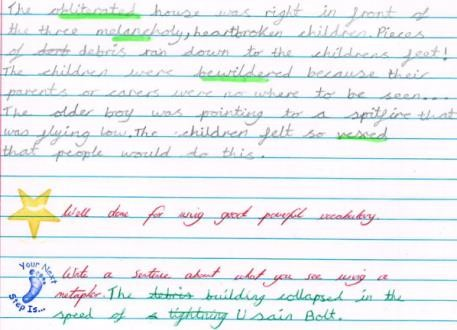 The obliterated house was right in front of
the three melancholy, heartbroken children. Pieces
of dort debris ran down to the childrens feet!
The children were bewildered because their
parents or carers were no where to be seen...
The older boy was pointing to a spitfire that
was flying low. The children felt so vexed
that people would do this.
Well done for using great powerful vocabulary.
Your Next
Step Is...
Write a sentence about what you see using a
metaphor. The debris building collapsed in the
speed of a lightning Usain Bolt.